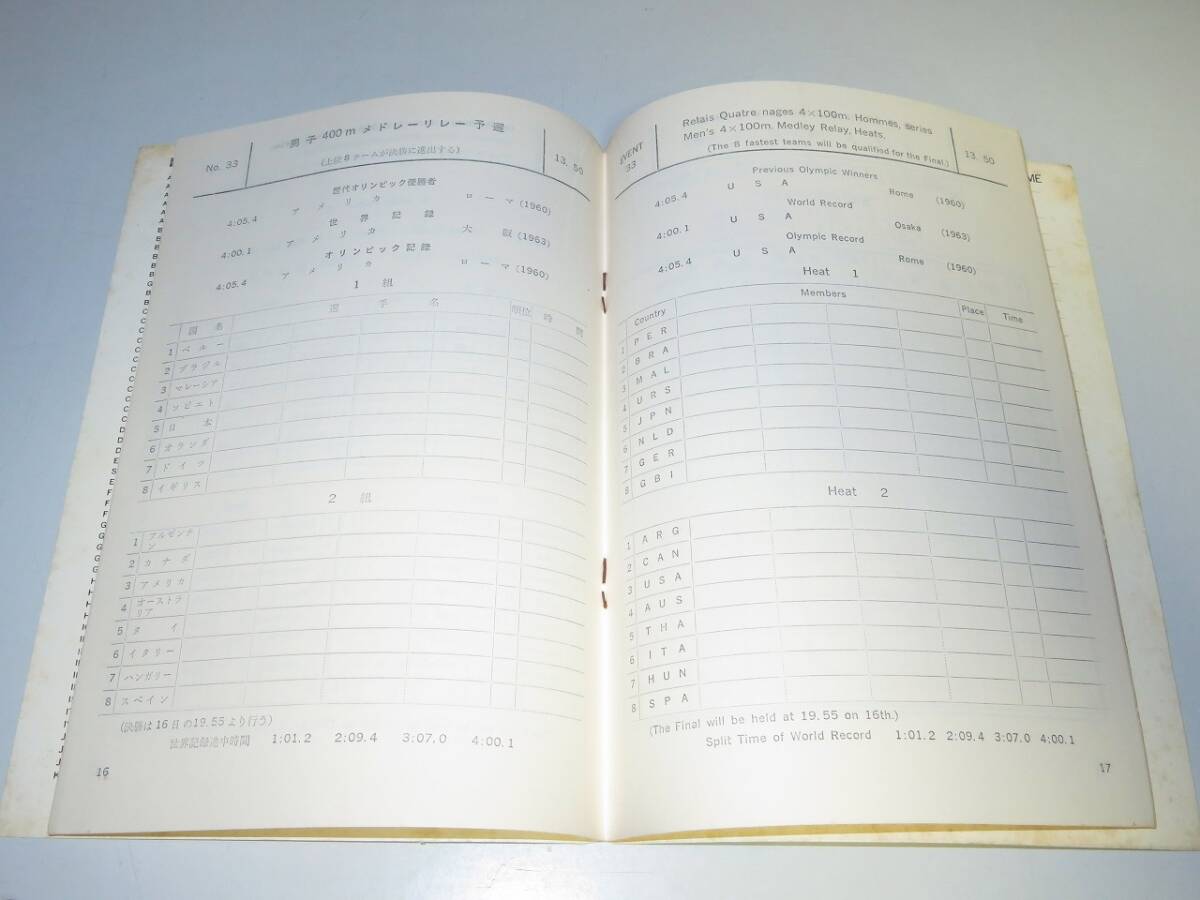 No. 33
男子400mメドレーリレー予選
(上位8チームが決勝に進出する)
13. 50
歴代オリンピック優勝者
4:05.4 アメリカ ローマ (1960)
世界記録
4:00.1 アメリカ 大阪 (1963)
オリンピック記録
4:05.4 アメリカ ローマ (1960)
1 組
国名 選手名 順位 時間
1 ペルー
2 ブラジル
3 マレーシア
4 ソビエト
5 日本
6 オランダ
7 ドイツ
8 イギリス
2 組
1 アルゼンチン
2 カナダ
3 アメリカ
4 オーストラリア
5 タイ
6 イタリー
7 ハンガリー
8 スペイン
(決勝は16日の19.55より行う)
世界記録途中時間 1:01.2 2:09.4 3:07.0 4:00.1
16
EVENT 33
Relais Quatre nages 4×100m. Hommes, series
Men's 4×100m. Medley Relay, Heats.
(The 8 fastest teams will be qualified for the Final.)
13. 50
Previous Olympic Winners
4:05.4 U S A Rome (1960)
World Record
4:00.1 U S A Osaka (1963)
Olympic Record
4:05.4 U S A Rome (1960)
Heat 1
Country Members Place Time
1 P E R
2 B R A
3 M A L
4 U R S
5 J P N
6 N L D
7 G E R
8 G B I
Heat 2
1 A R G
2 C A N
3 U S A
4 A U S
5 T H A
6 I T A
7 H U N
8 S P A
(The Final will be held at 19.55 on 16th.)
Split Time of World Record 1:01.2 2:09.4 3:07.0 4:00.1
17